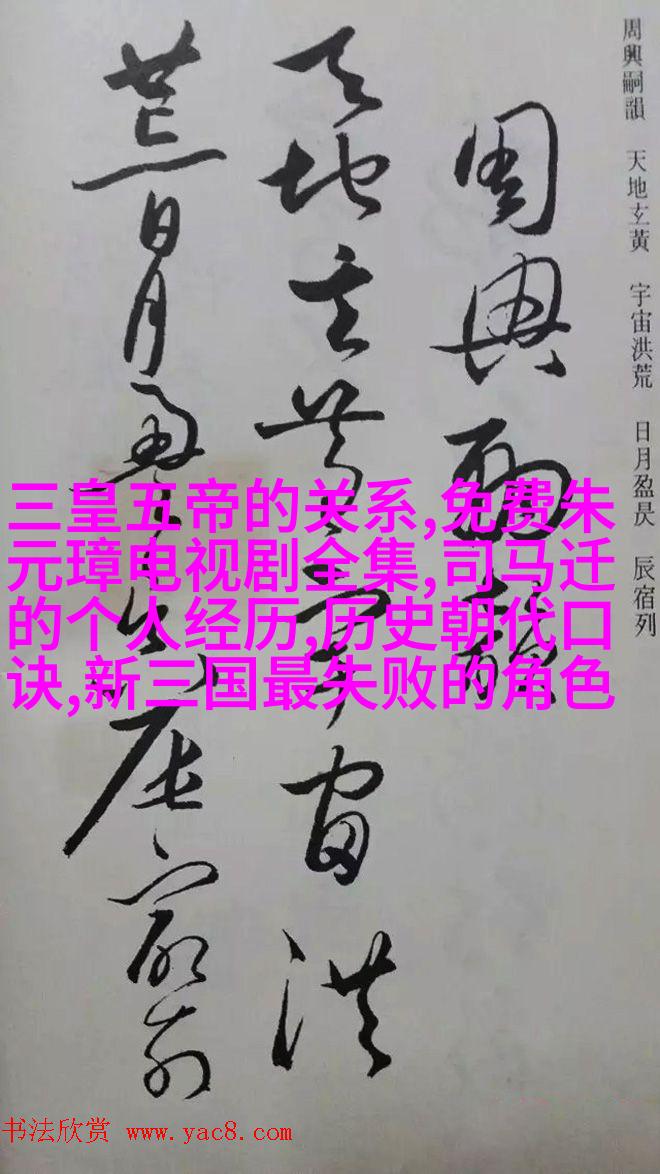 周興嗣韻 天地玄黃 宇宙洪荒 日月盈昃 辰宿列
周興嗣韻
天地玄黃宇宙洪
荒日月盈昃辰宿列
三皇五帝的关系,免费朱
元璋电视剧全集,司马迁
的个人经历,历史朝代口
诀,新三国最失败的角色
书法欣赏 www.yac8.com